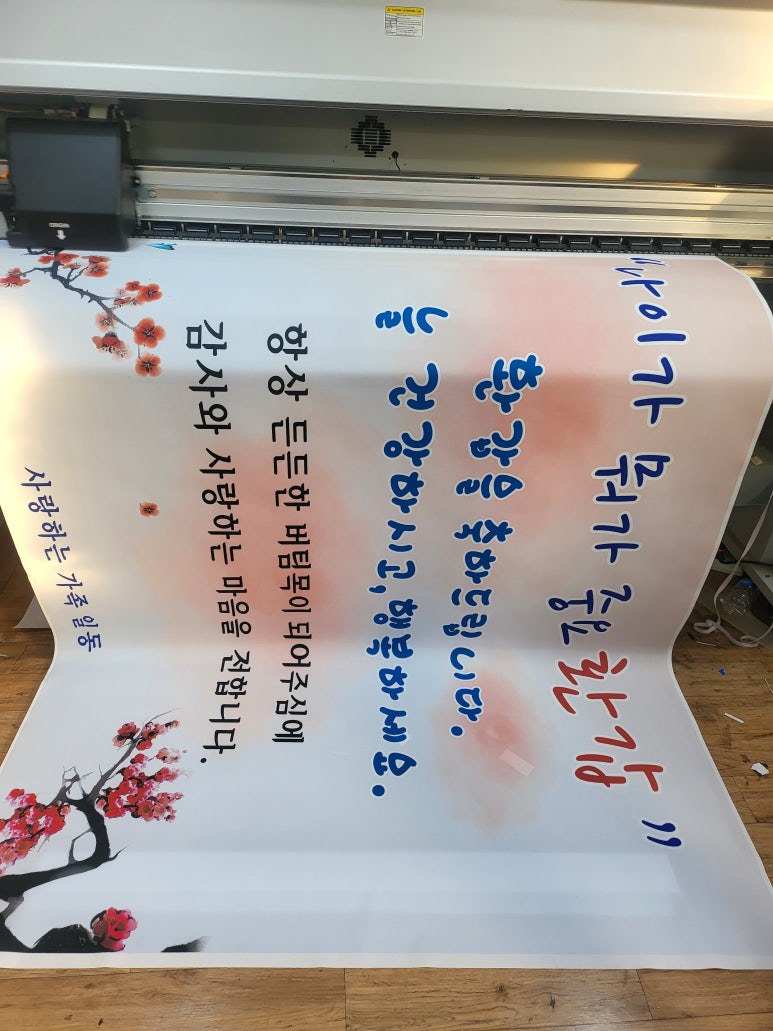 “나이가 뭐가 중요
환갑”
환갑을 축하드립니다.
늘 건강하시고, 행복하세요.
항상 든든한 버팀목이 되어주심에
감사와 사랑하는 마음을 전합니다.
사랑하는 가족 일동